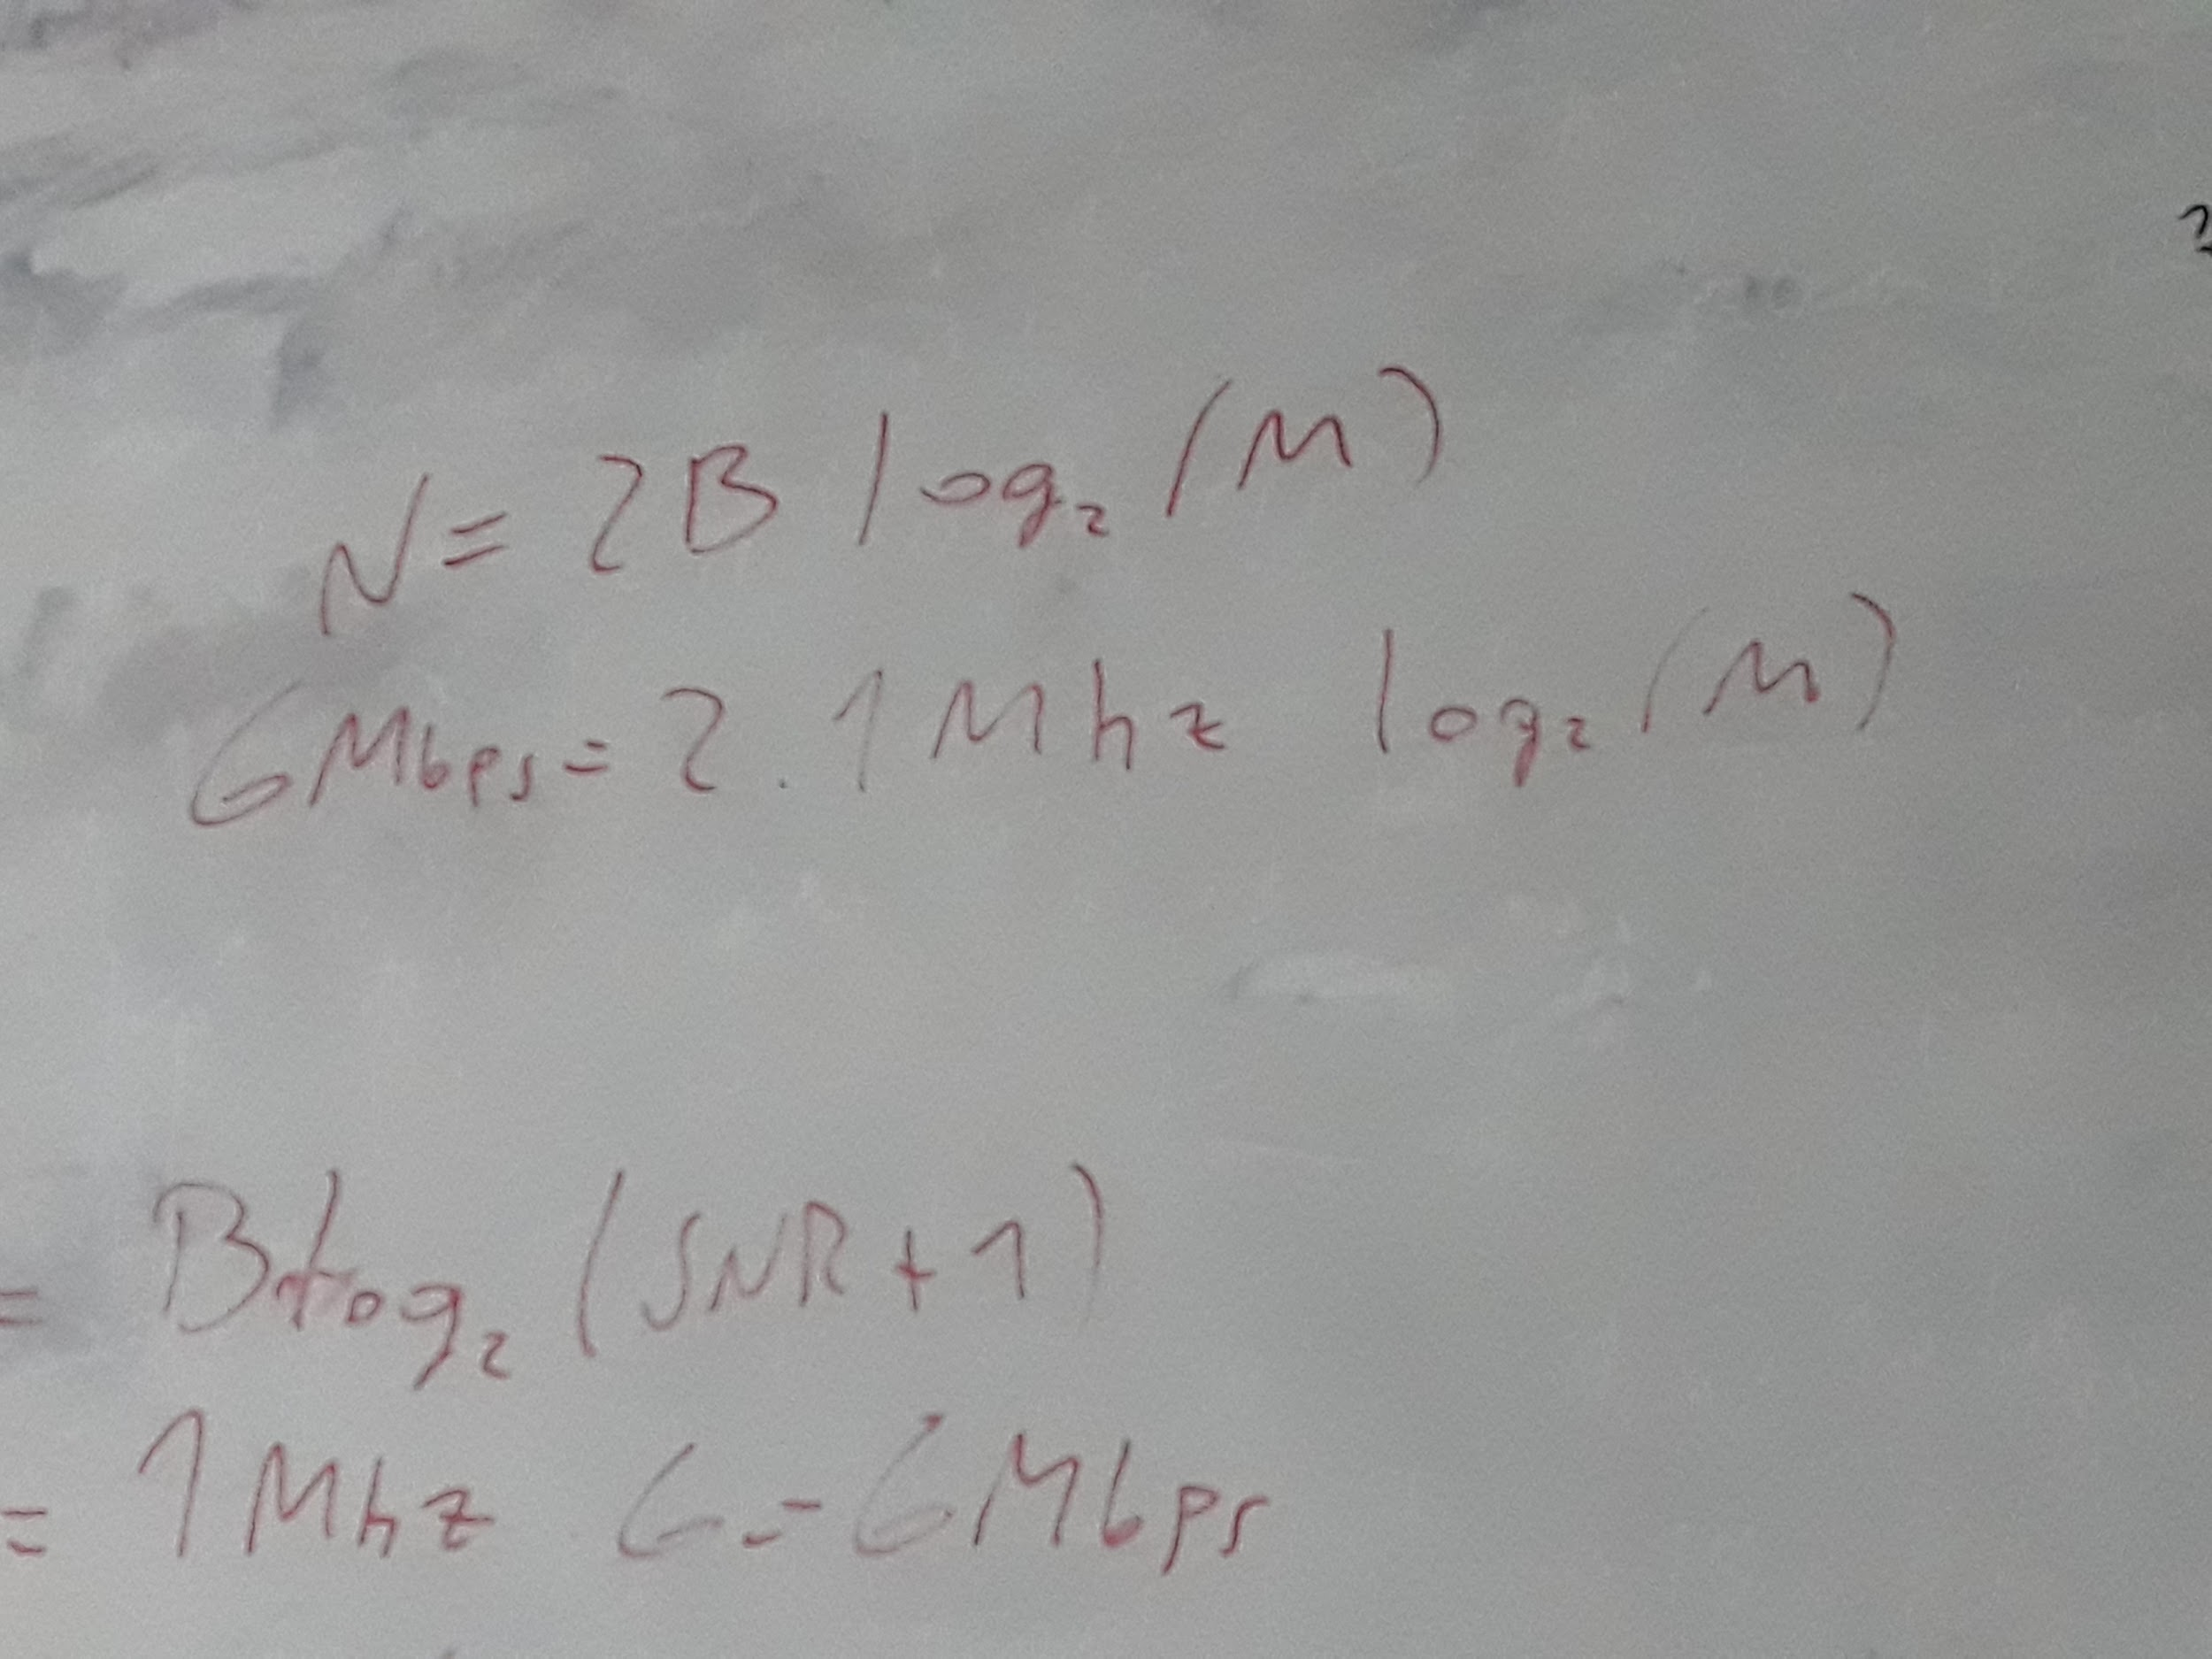 N = 2B log₂ (M)
6Mbps = 2 . 1Mhz log₂ (M)
= B log₂ (SNR + 1)
= 1Mhz 6 = 6Mbps